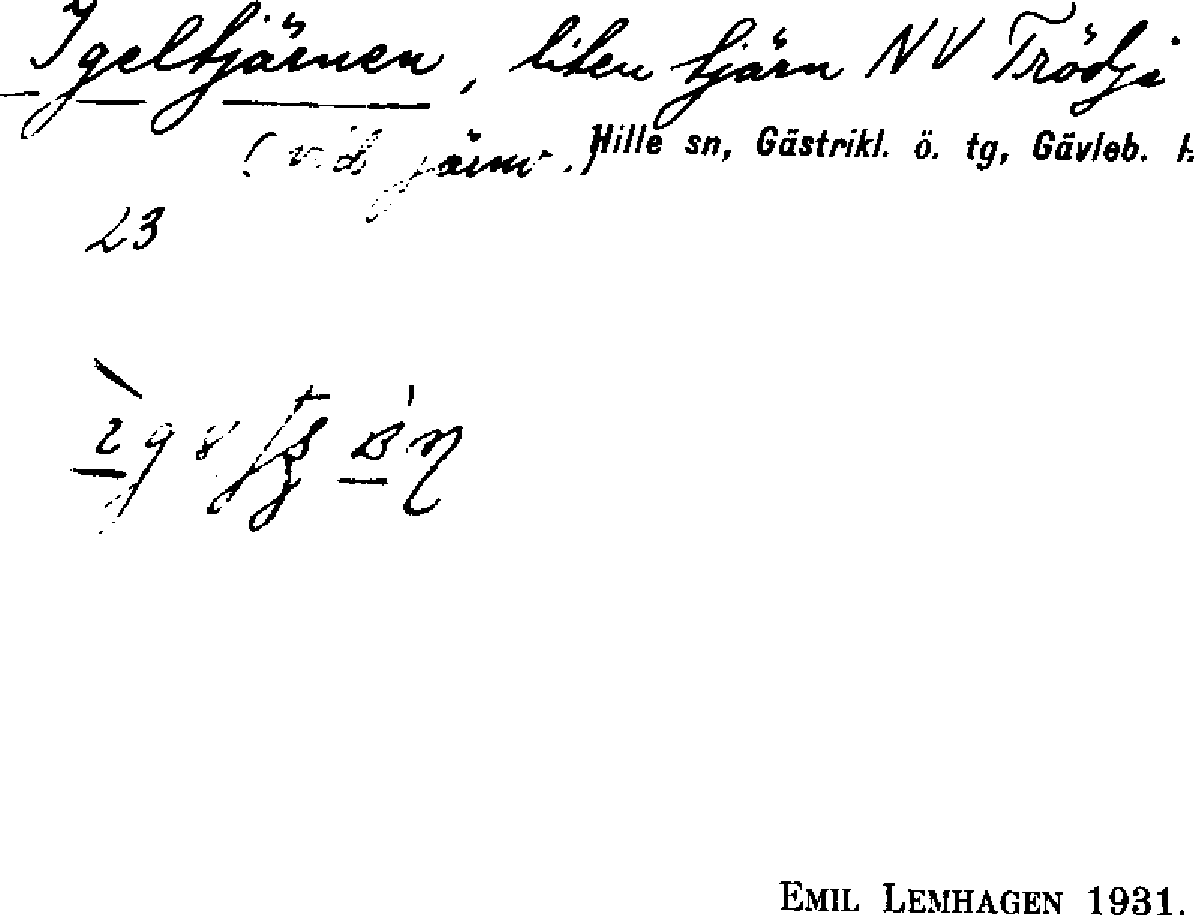 Igeltjärnen, liten tjärn NV Trödje
(vid järnv.) Hille sn, Gästrikl. ö. tg, Gävleb. l
23
EMIL LEMHAGEN 1931.